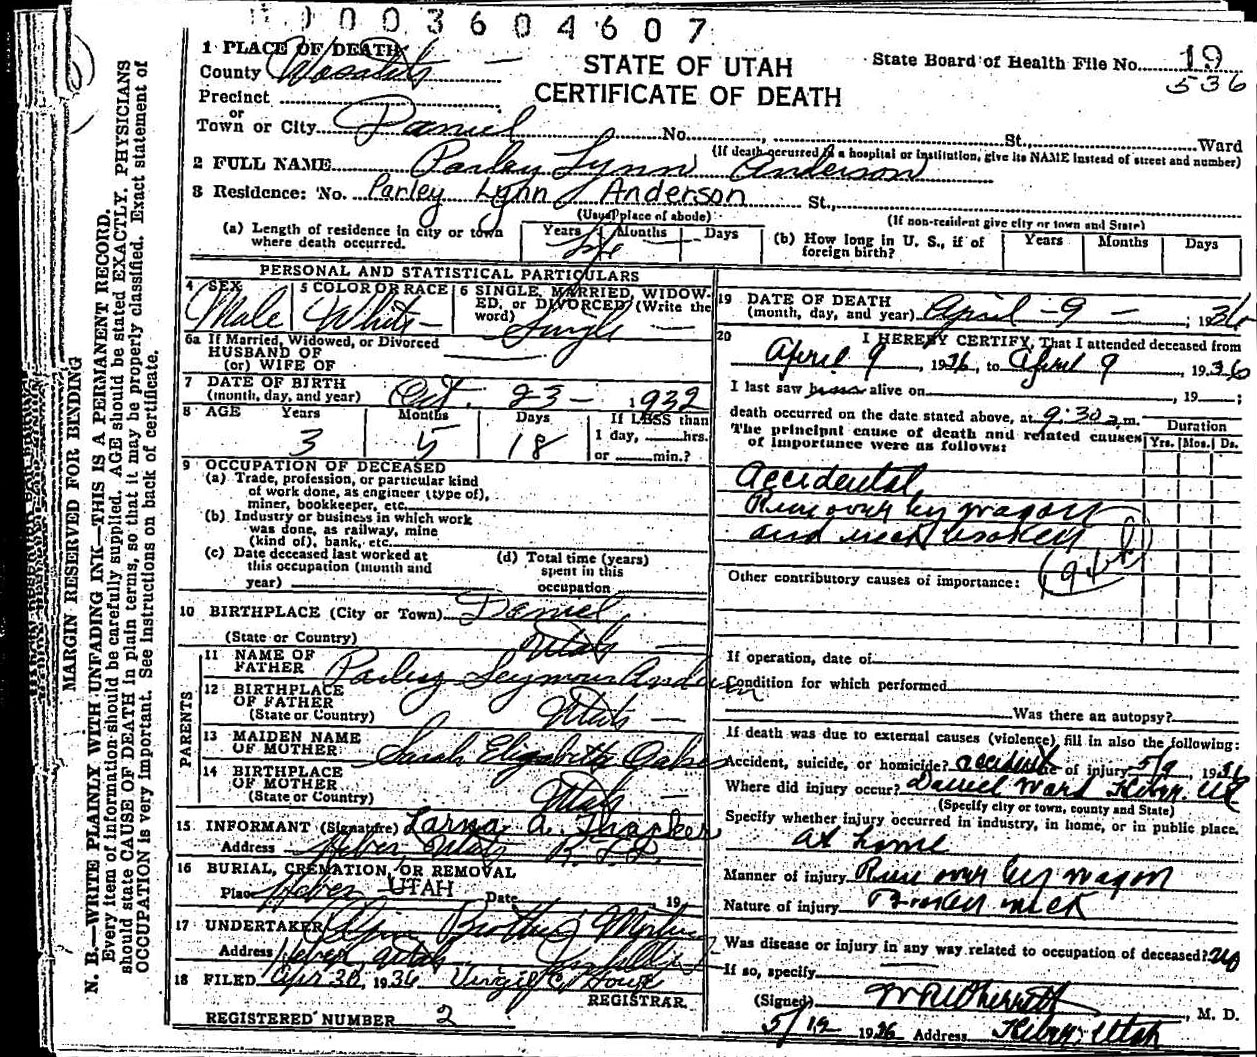 0003604607
1 PLACE OF DEATH
County Wasatch
STATE OF UTAH
CERTIFICATE OF DEATH
State Board of Health File No. 19
536
Precinct
or
Town or City Daniel No. , St., Ward
(If death occurred in a hospital or institution, give its NAME instead of street and number)
2 FULL NAME Parley Lynn Anderson
3 Residence: No. Parley Lynn Anderson St.,
(Usual place of abode)
(If non-resident give city or town and State)
(a) Length of residence in city or town where death occurred. Years Months Days
Life
(b) How long in U. S., if of foreign birth? Years Months Days
PERSONAL AND STATISTICAL PARTICULARS
4 SEX
Male
5 COLOR OR RACE
White
6 SINGLE, MARRIED, WIDOW-
ED, or DIVORCED (Write the
word) Single
6a If Married, Widowed, or Divorced
HUSBAND OF
(or) WIFE OF
7 DATE OF BIRTH
(month, day, and year) Oct. 23 - 1932
8 AGE Years Months Days If LESS than
3 5 18 1 day, hrs.
or min.?
9 OCCUPATION OF DECEASED
(a) Trade, profession, or particular kind
of work done, as engineer (type of),
miner, bookkeeper, etc.
(b) Industry or business in which work
was done, as railway, mine
(kind of), bank, etc.
(c) Date deceased last worked at
this occupation (month and
year)
(d) Total time (years)
spent in this
occupation
10 BIRTHPLACE (City or Town) Daniel
(State or Country) Utah
PARENTS
11 NAME OF
FATHER Parley Seymour Anderson
12 BIRTHPLACE
OF FATHER
(State or Country) Utah
13 MAIDEN NAME
OF MOTHER Sarah Elizabeth
14 BIRTHPLACE
OF MOTHER
(State or Country) Utah
15 INFORMANT (Signature) Larna A. Thacker
Address Heber, Utah
16 BURIAL, CREMATION, OR REMOVAL
Place Heber UTAH Date , 19
17 UNDERTAKER Olpin Brothers
Address Heber, Utah
18 FILED Apr 30, 1936 Virgil C.
REGISTRAR.
REGISTERED NUMBER 2
19 DATE OF DEATH
(month, day, and year) April - 9 - ; 1936
20 I HEREBY CERTIFY, That I attended deceased from
April 9, 1936, to April 9, 1936
I last saw alive on , 19 ;
death occurred on the date stated above, at 9:30 a.m.
The principal cause of death and related causes
of importance were as follows:
Duration
Yrs. Mos. Ds.
Accidental
Run over by wagon
and neck broken
Other contributory causes of importance:
If operation, date of
Condition for which performed
Was there an autopsy?
If death was due to external causes (violence) fill in also the following:
Accident, suicide, or homicide? accident Date of injury 5/9, 1936
Where did injury occur? Daniel Ward Heber. Ut
(Specify city or town, county and State)
Specify whether injury occurred in industry, in home, or in public place.
At home
Manner of injury Run over by wagon
Nature of injury Broken neck
Was disease or injury in any way related to occupation of deceased? no
If so, specify
(Signed) , M. D.
5/12 1936 Address Heber, Utah
MARGIN RESERVED FOR BINDING
N. B.—WRITE PLAINLY WITH UNFADING INK—THIS IS A PERMANENT RECORD.
Every item of information should be carefully supplied. AGE should be stated EXACTLY. PHYSICIANS
should state CAUSE OF DEATH in plain terms, so that it may be properly classified. Exact statement of
OCCUPATION is very important. See instructions on back of certificate.